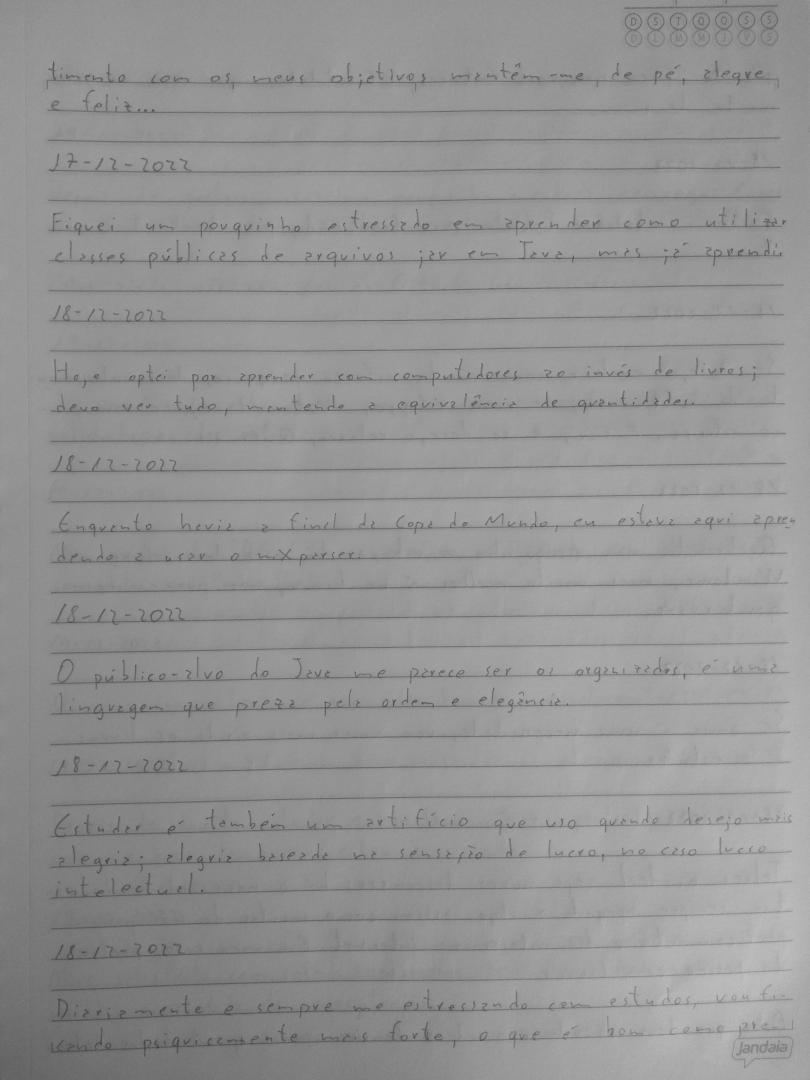 D S T Q Q S S
D L M M J V S
timento com os, meus objetivos mantêm-me, de pé, alegre
e feliz...
17-12-2022
Fiquei um pouquinho estressado em aprender como utilizar
classes públicas de arquivos jar em Java, mas já aprendi.
18-12-2022
Hoje optei por aprender com computadores ao invés de livros;
devo ver tudo, mantendo a equivalência de quantidades.
18-12-2022
Enquanto havia a final da Copa do Mundo, eu estava aqui apren
dendo a usar o mXparser.
18-12-2022
O público-alvo do Java me parece ser os organizados, é uma
linguagem que preza pela ordem e elegância.
18-12-2022
Estudar é também um artifício que uso quando desejo mais
alegria; alegria baseada na sensação de lucro, no caso lucro
intelectual.
18-12-2022
Diariamente e sempre me estressando com estudos, vou fi-
cando psiquicamente mais forte, o que é bom como pre-
Jandaia